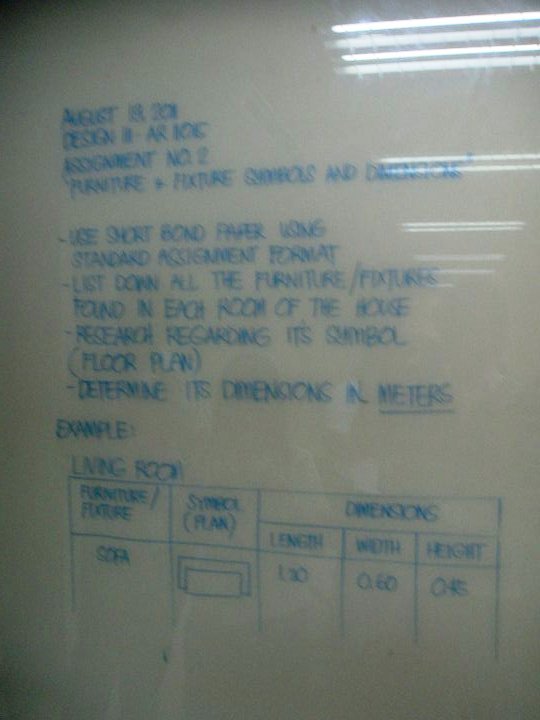 AUGUST 19, 2011
DESIGN III - AR 1015
ASSIGNMENT NO. 2
"FURNITURE + FIXTURE SYMBOLS AND DIMENSIONS"
- USE SHORT BOND PAPER USING
STANDARD ASSIGNMENT FORMAT
- LIST DOWN ALL THE FURNITURE/FIXTURES
FOUND IN EACH ROOM OF THE HOUSE
- RESEARCH REGARDING ITS SYMBOL
(FLOOR PLAN)
- DETERMINE ITS DIMENSIONS IN METERS
EXAMPLE:
LIVING ROOM
FURNITURE/
FIXTURE
SYMBOL
(PLAN)
DIMENSIONS
LENGTH WIDTH HEIGHT
SOFA
0.60 0.45